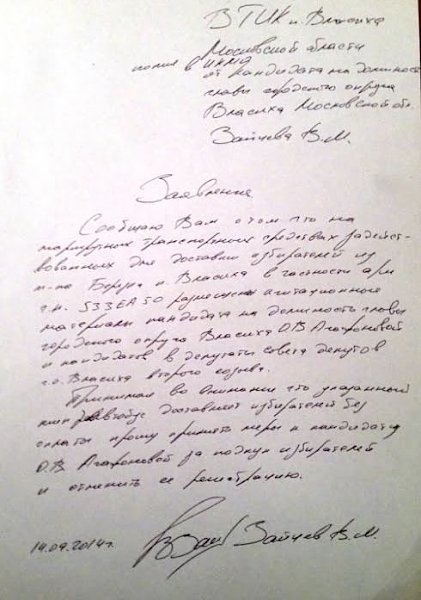 В ТИК п. Власиха
Московской области
копия в ИКМО
от кандидата на должность
главы городского округа
Власиха Московской обл.
Зайцева В.М.
Заявление
Сообщаю Вам о том что на
маршрутных транспортных средствах задейст-
вованных для доставки избирателей из
Берёзки п. Власиха в частности
г.н. 533ЕА50 размещены агитационные
материалы кандидата на должность главы
городского округа Власиха О.В Агафоновой
и кандидатов в депутаты совета депутов
г.о. Власиха второго созыва.
Принимая во внимание что указанный
доставляет избирателей без
оплаты прошу принять меры к кандидату
О.В Агафоновой за подкуп избирателей
и отменить ее регистрацию.
14.09.2014г. Зайцев В.М.